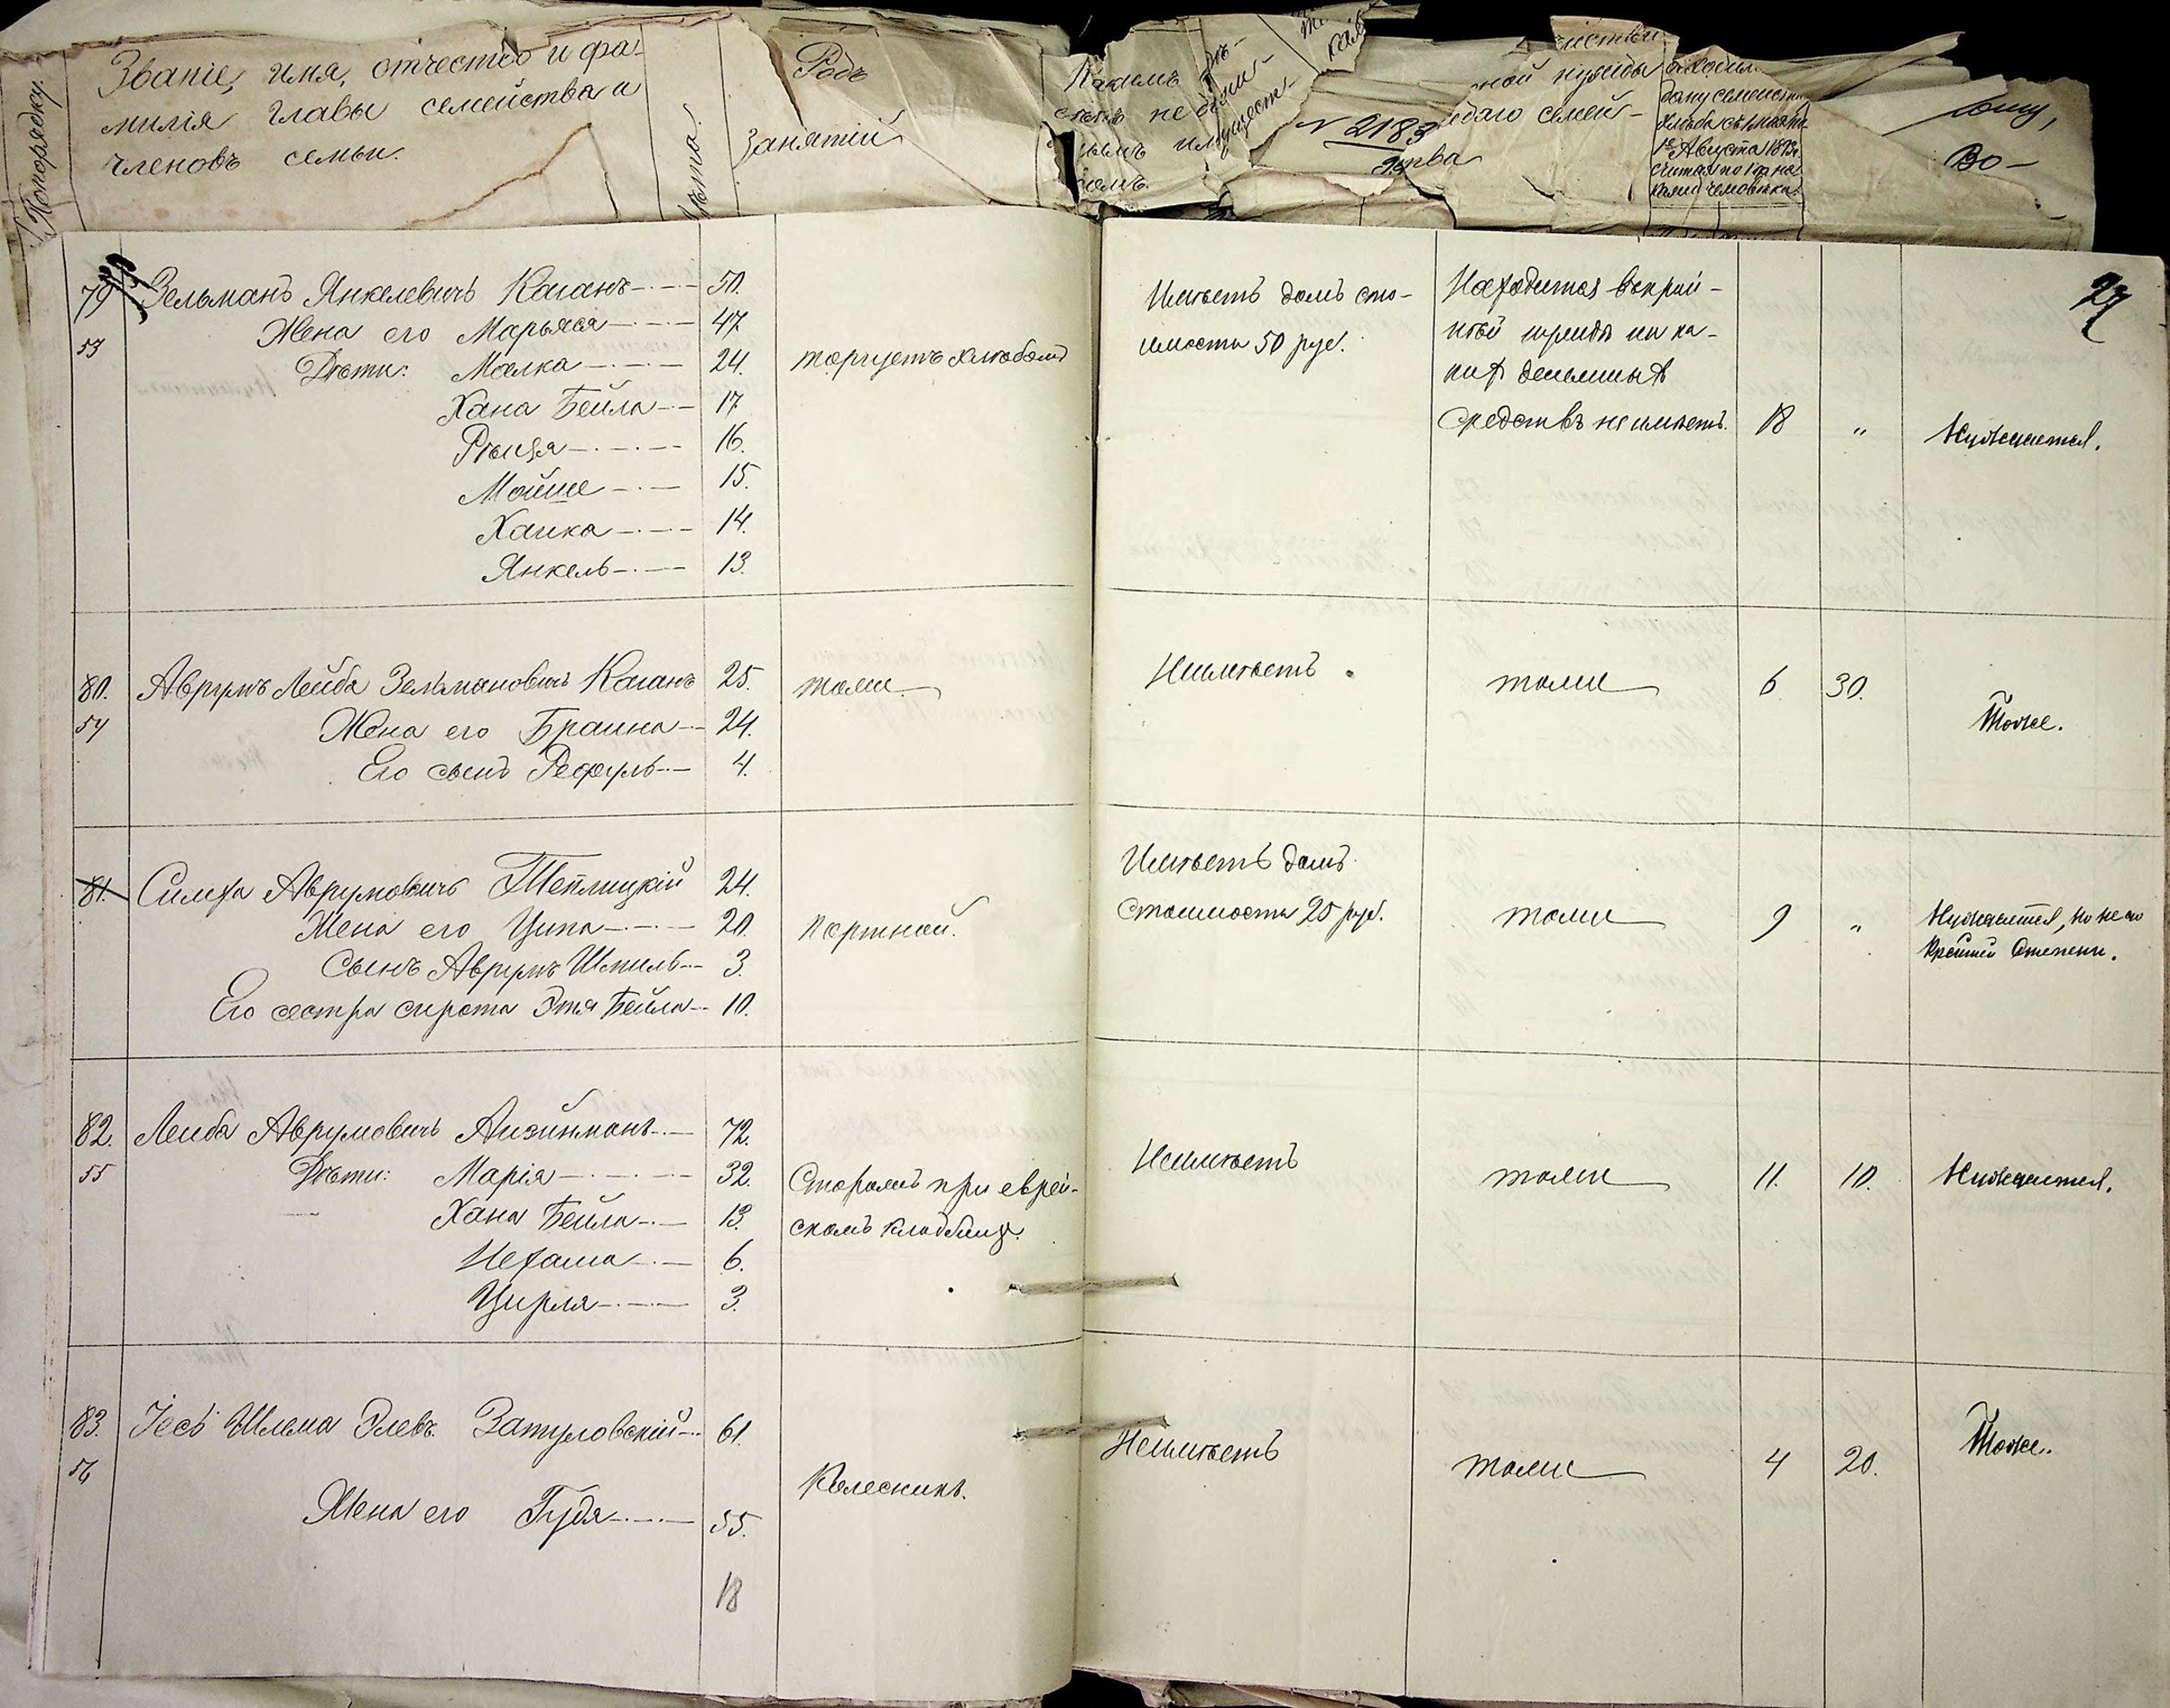 № Попорядку.
Званіе, имя, отчество и фа-
милія главы семейства и
членовъ семьи.
Лѣта.
Родъ
занятій
Какимъ
имущест-
№ 2183
ной нужды
ждаго семей-
ства
дому семейству
1го Августа 1892г.
считая по 1 п. на
каждаго человѣка.
Во-
27
79 Зельманъ Янкелевичъ Каганъ 50. Имѣетъ домъ сто- Находится вкрай-
53 Жена его Марьяся 47 имости 50 руб. нѣй нуждѣ ни ка-
Дѣти: Малка 24. торгуетъ хлѣбомъ кихъ денежныхъ
Хана Бейла 17 средствъ не имѣетъ. 18 " Нуждается.
Рѣйзя 16.
Мойше 15.
Хаика 14.
Янкель 13.
80. Аврумъ Лейба Зельмановичъ Каганъ 25. тоже Неимѣетъ тоже 6 30.
54 Жена его Браина 24. Тоже.
Его сынъ Рефуль 4.
81. Симха Аврумовичъ Теплицкій 24. Имѣетъ домъ
Жена его Ципа 20. портной. Стоимости 25 руб. тоже 9 " Нуждается, но не въ
Сынъ Аврумъ Шмиль 3. Крайней Степени.
Его сестра сирота Этя Бейла 10.
82. Лейба Аврумовичъ Айзинманъ 72. Неимѣетъ
55 Дѣти: Марія 32. Сторожъ при еврей- тоже 11. 10. Нуждается.
Хана Бейла 13. скомъ кладбищѣ.
Нехама 6.
Цирля 3.
83. Іось Шлема Элевъ. Затуловскій 61. Неимѣетъ тоже 4 20. Тоже.
56 Колесникъ.
Жена его Гудя 55.
18